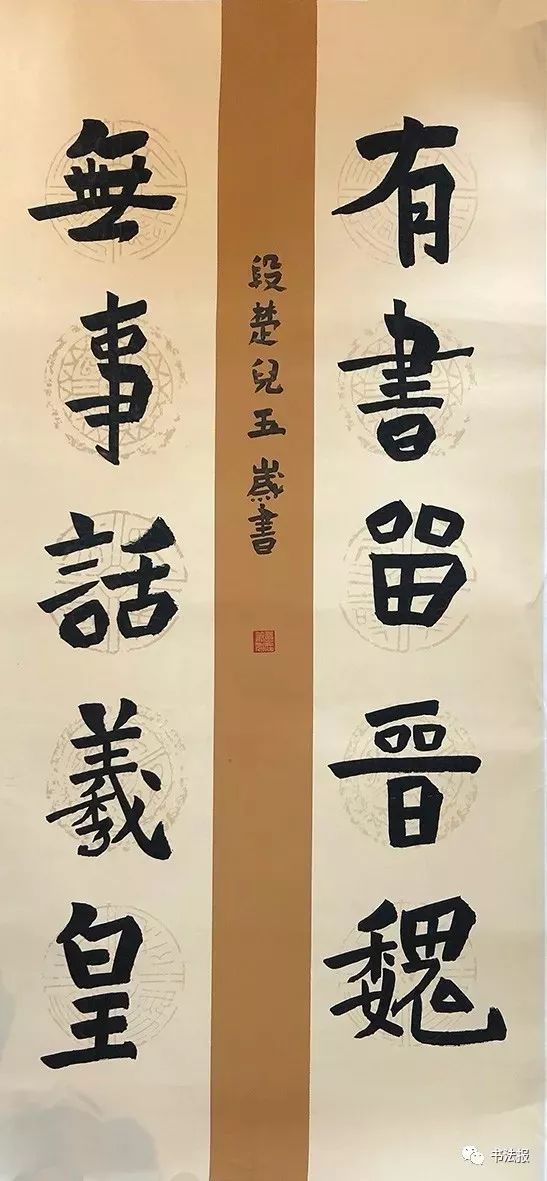 有書留晉魏
無事話羲皇
段楚兒五歲書
书法报